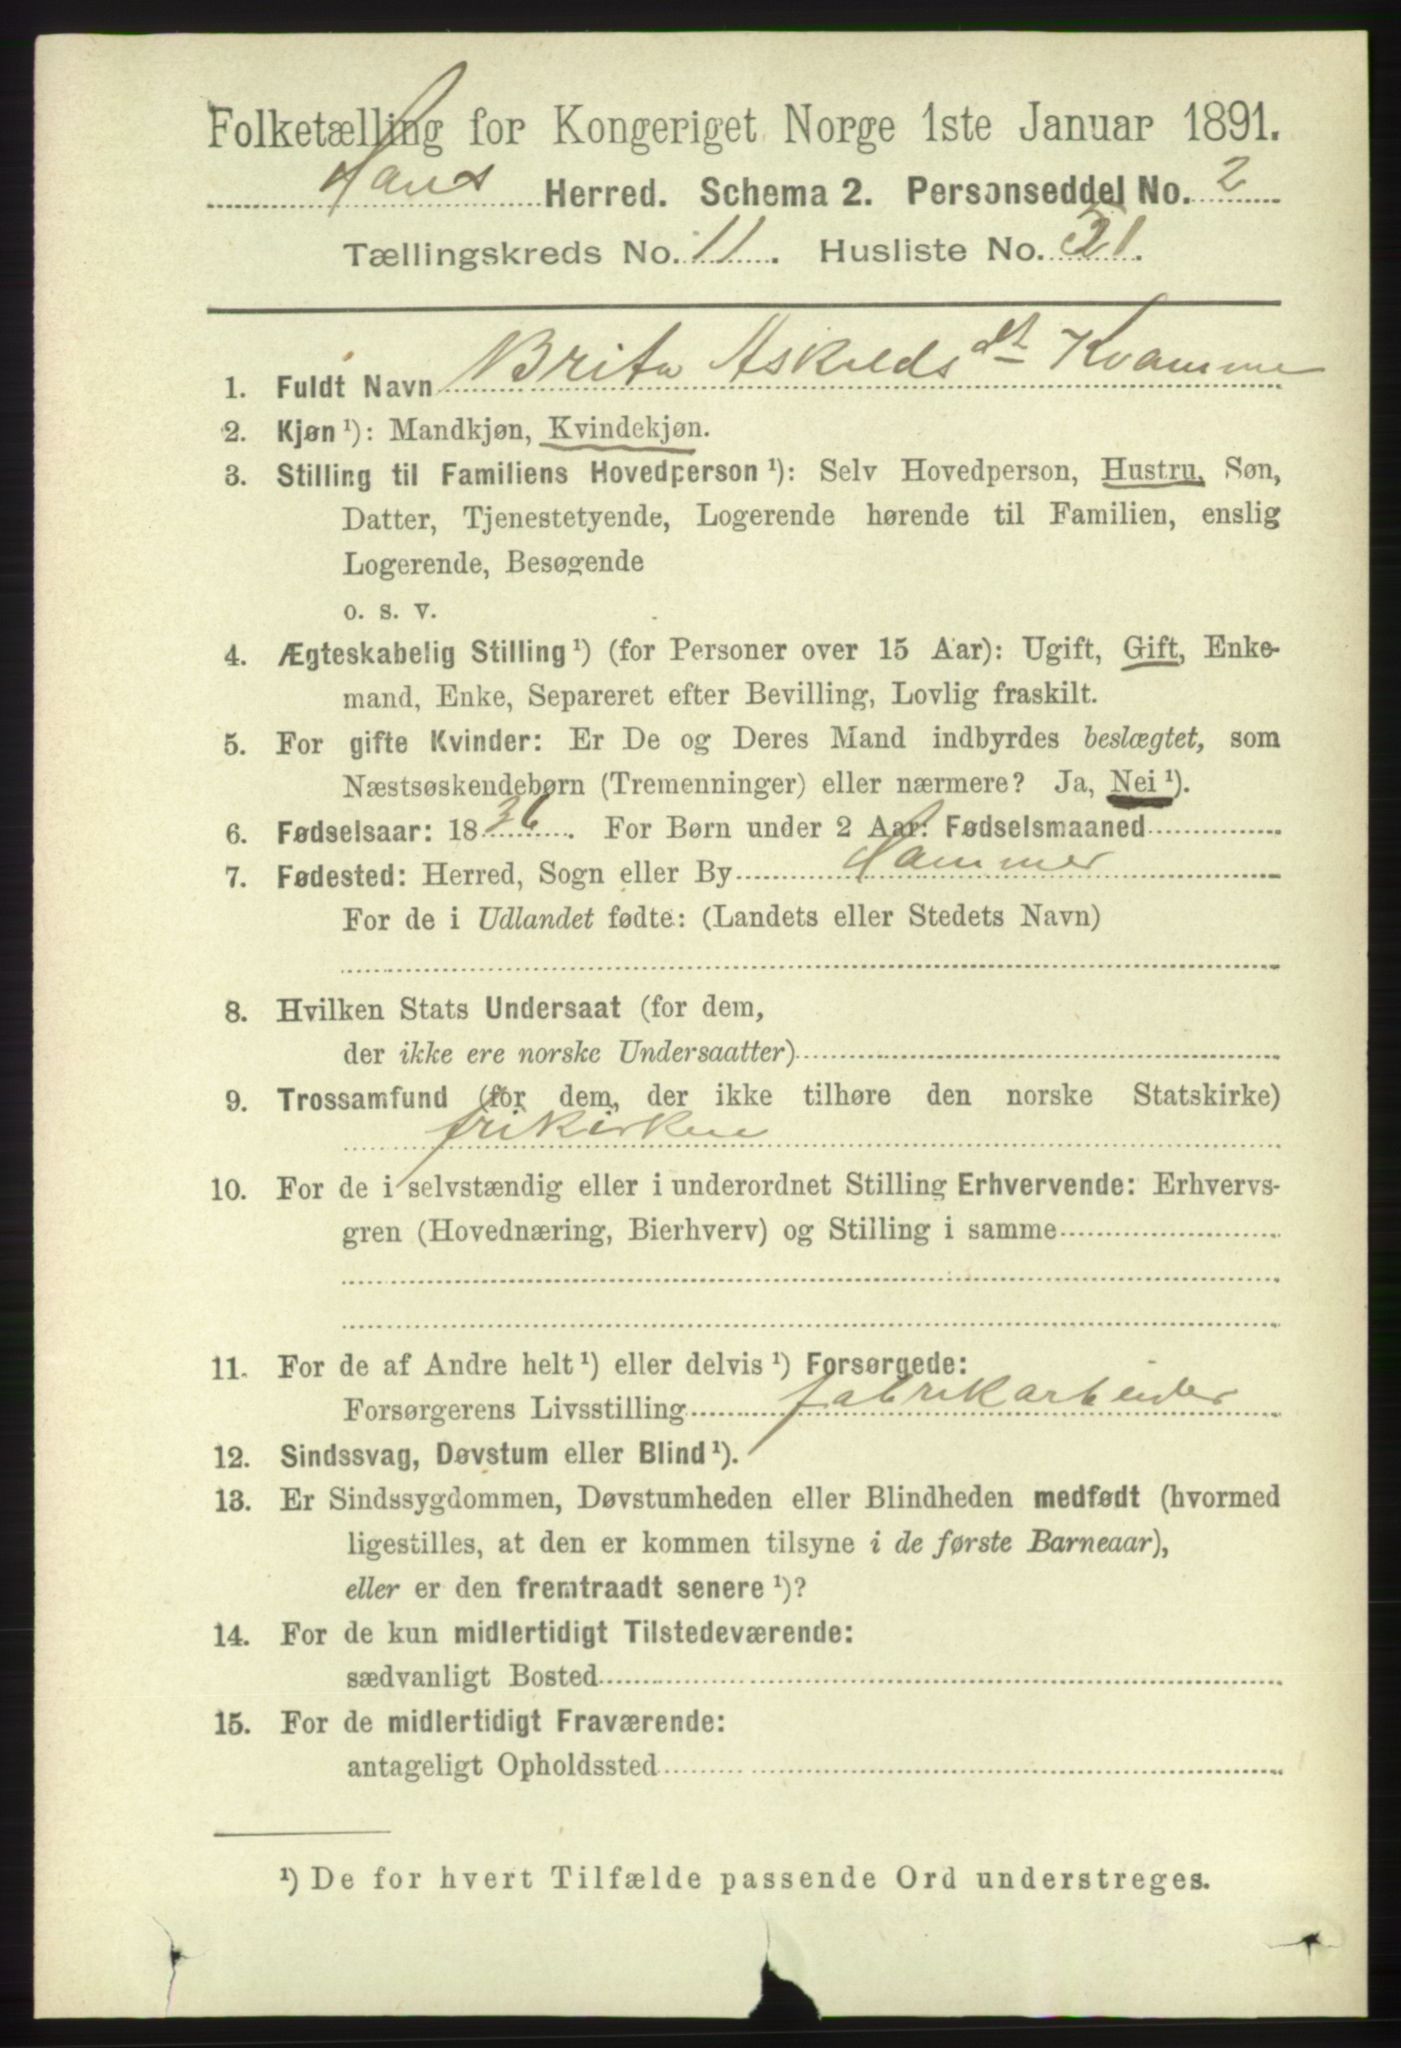 Folketælling for Kongeriget Norge 1ste Januar 1891.
Haus Herred. Schema 2. Personseddel No. 2
Tællingskreds No. 11. Husliste No. 31.
1. Fuldt Navn Brita Askildsdt Kvamme
2. Kjøn ¹): Mandkjøn, Kvindekjøn.
3. Stilling til Familiens Hovedperson ¹): Selv Hovedperson, Hustru, Søn,
Datter, Tjenestetyende, Logerende hørende til Familien, enslig
Logerende, Besøgende
o. s. v.
4. Ægteskabelig Stilling ¹) (for Personer over 15 Aar): Ugift, Gift, Enke-
mand, Enke, Separeret efter Bevilling, Lovlig fraskilt.
5. For gifte Kvinder: Er De og Deres Mand indbyrdes beslægtet, som
Næstsøskendebørn (Tremenninger) eller nærmere? Ja, Nei ¹).
6. Fødselsaar: 1836. For Børn under 2 Aar: Fødselsmaaned
7. Fødested: Herred, Sogn eller By Hammer
For de i Udlandet fødte: (Landets eller Stedets Navn)
8. Hvilken Stats Undersaat (for dem,
der ikke ere norske Undersaatter)
9. Trossamfund (for dem, der ikke tilhøre den norske Statskirke)
frikirken
10. For de i selvstændig eller i underordnet Stilling Erhvervende: Erhvervs-
gren (Hovednæring, Bierhverv) og Stilling i samme
11. For de af Andre helt ¹) eller delvis ¹) Forsørgede:
Forsørgerens Livsstilling fabrikarbeider
12. Sindssvag, Døvstum eller Blind ¹).
13. Er Sindssygdommen, Døvstumheden eller Blindheden medfødt (hvormed
ligestilles, at den er kommen tilsyne i de første Barneaar),
eller er den fremtraadt senere ¹)?
14. For de kun midlertidigt Tilstedeværende:
sædvanligt Bosted
15. For de midlertidigt Fraværende:
antageligt Opholdssted
¹) De for hvert Tilfælde passende Ord understreges.